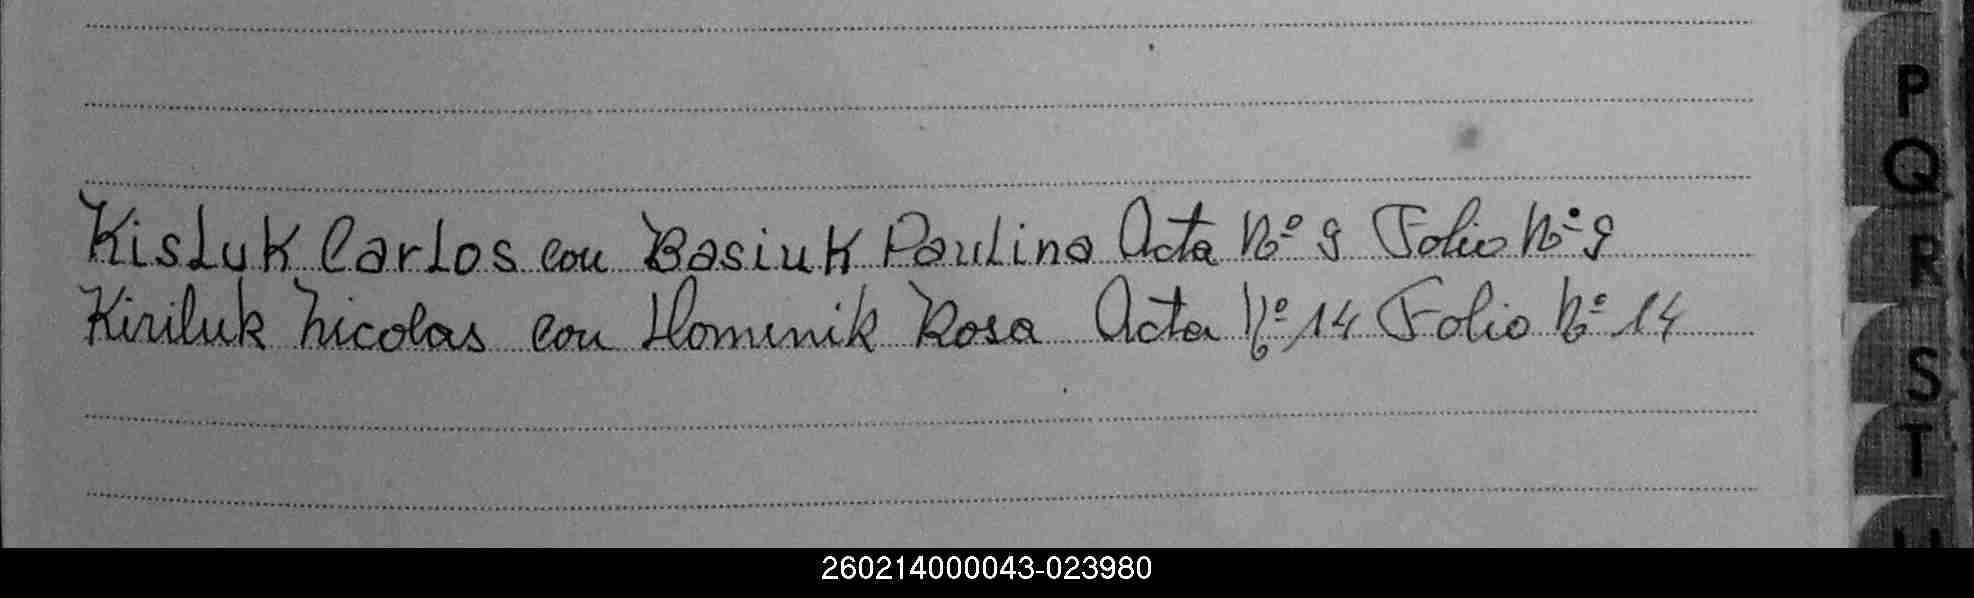 Kisluk Carlos con Basiuk Paulina Acta Nº 9 Folio Nº 9
Kiriluk Nicolas con Homenik Rosa Acta Nº 14 Folio Nº 14
P
Q
R
S
T
U
260214000043-023980